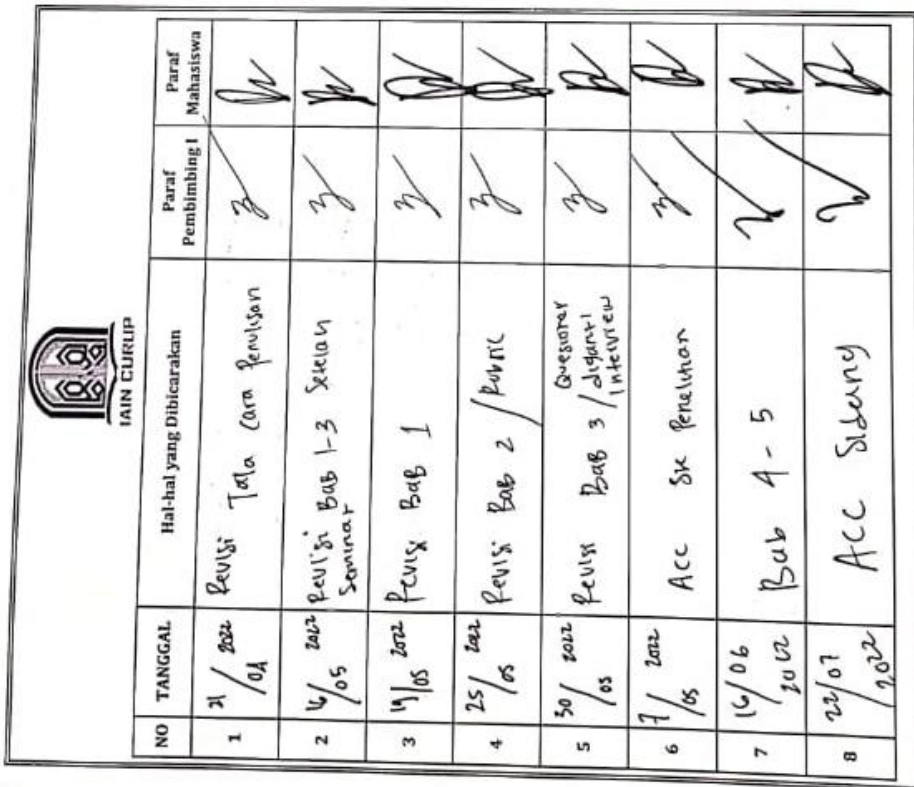 IAIN CURUP
NO TANGGAL Hal-hal yang Dibicarakan Paraf Pembimbing I Paraf Mahasiswa
1 21/04 2022 Revisi Tata Cara Penulisan
2 /05 2022 Revisi Bab 1-3 Setelah
Seminar
3 19/05 2022 Revisi Bab 1
4 25/05 2022 Revisi Bab 2 / Rubric
5 30/05 2022 Revisi Bab 3 / Quesioner
diganti
Interview
6 7/05 2022 Acc SK Penelitian
7 16/06 2022 Bab 4-5
8 22/07 2022 ACC Sidang